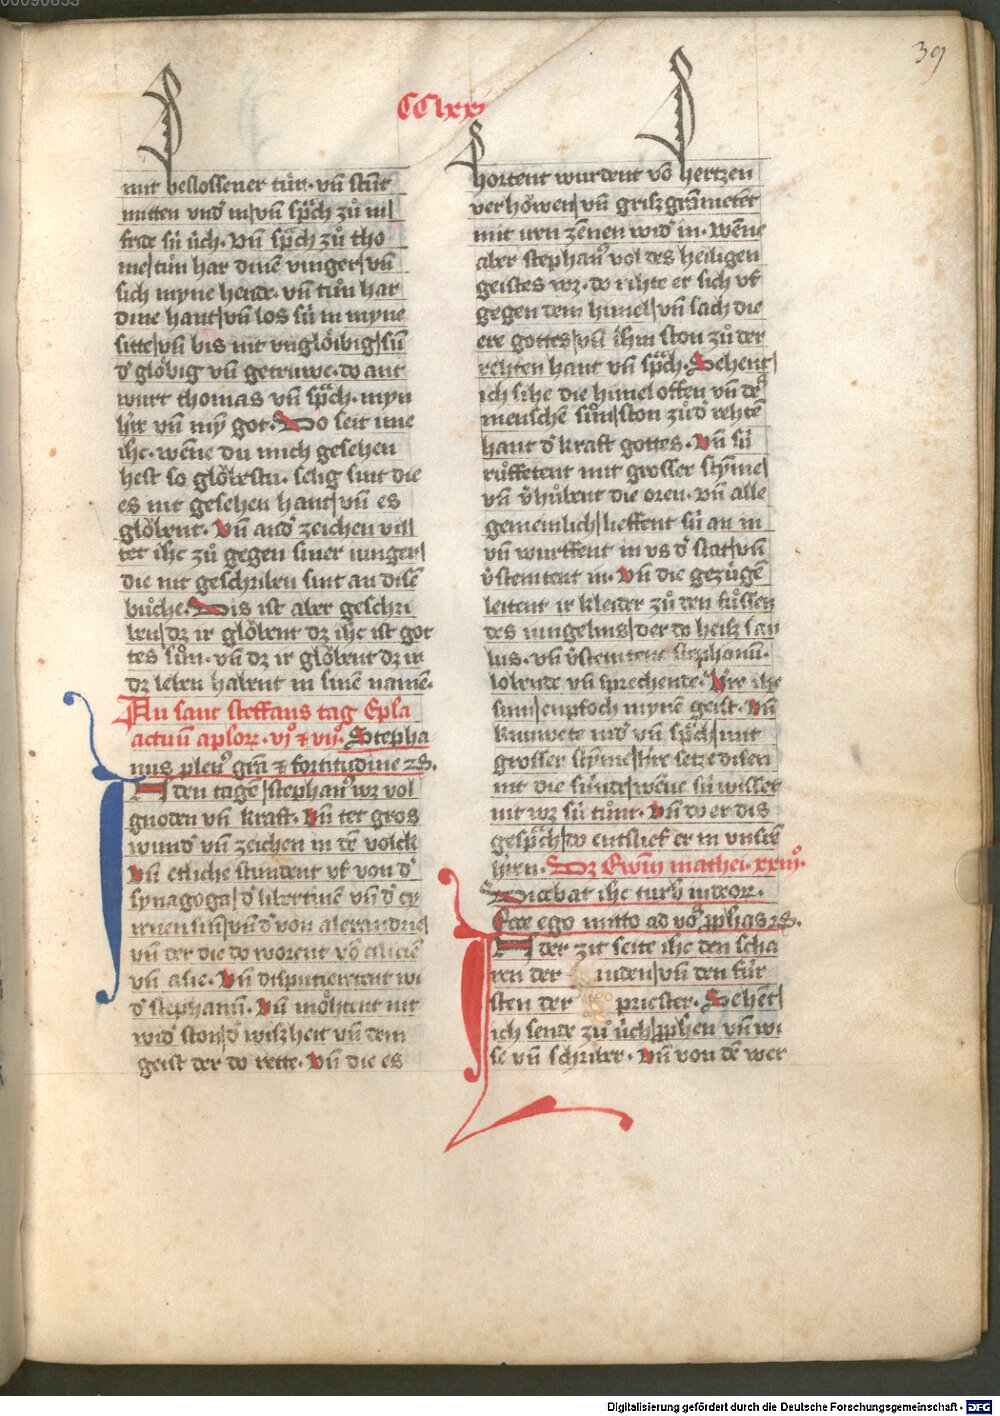 39
CClxxi
mit beslossener túr · vñ stůnt
mitten vnd' in / vñ sp̃ch zů in /
fride sii úch · Vñ sp̃ch zů tho
me / tůn har dinē vinger / vñ
sich myne hende · vñ tůn har
dine hant / vñ los sú in myne
sitte / vñ bis nit vnglöibig / sūd
d' glöbig vñ getruwe · do ant
wurt thomas vñ sp̃ch · myn
h're vñ mȳ got · Do seit ime
ihc · wēne du mich gesehen
hest so glöbestu · selig sint die
es nit gesehen hant / vñ es
glöbent · Vñ and' zeichen vil /
tet ihc zů gegen siner iunger /
die nit geschriben sint an disē
bůche · Dis ist aber geschri
ben / dz ir glöbent dz ihc ist got
tes sůn · vñ dz ir glöbent dz ir
dz leben habent in sinē namē ·
An sant steffans tag Epla
actuū aplor · vi° ⁊ vii° · Stepha
nus plen' grã ⁊ fortitudine ⁊c ·
In den tagē / stephan' wz vol
gnoden vñ kraft · Vñ tet gros
wund' vñ zeichen in dē volck
Vñ etliche stundent vf von d'
synagoga / d' libertinē vñ d' cy
renensiū / vñ d' von alexandrie /
vñ der die do worent vō ciliciē
vñ asie · Vñ disputiertent wi
d' stephanū · Vñ möhtent nit
wid' ston / d' wiszheit vñ dem
geist der do rette · Vñ die es
hortent wurdent vō hertzen
verhöwen / vñ griszgrametēt
mit iren zēnen wid' in · Wēne
aber stephan' vol des heiligen
geistes wz · do rihte er sich vf
gegen dem himel / vñ sach die
ere gottes / vñ ihm ston zů der
rehten hant vñ sp̃ch · Sehent /
ich sihe die himel offen vñ dē
menschē sůn / ston zů d' rehtē
hant d' kraft gottes · Vñ sú
růffetent mit grosser stȳme /
vñ v'hůbent die oren · vñ alle
gemeinlich / lieffent sú an in
vñ wurffent in vs d' stat / vñ
v'steintent in · Vñ die gezúgē
leitent ir kleider zů den fůssen
des iungelins / der do heisz sau
lus · vñ v'steintent stephanū ·
lobende vñ sprechende · H're ihc
sum / enpfoch mynē geist · Vñ
knuwete nid' vñ sp̃ch / mit
grosser stȳme / h're setze disen
nit die súnde / wēne sú wissent
nit wz sú tůnt · Vñ do er dis
gesp̃ch / do entslief er in vnserē
h'ren · Dz Ewm̄ mathei · xxiii° ·
Dicebat ihc turb' iudeor ·
Ecce ego mitto ad vos pphas ⁊c ·
In der zit seite ihc den scha
ren der iuden / vñ den fúr
sten der priester · Sehent /
ich sende zů úch / pphen vñ wi
se vñ schriber · Vñ von dē wer
Digitalisierung gefördert durch die Deutsche Forschungsgemeinschaft - DFG